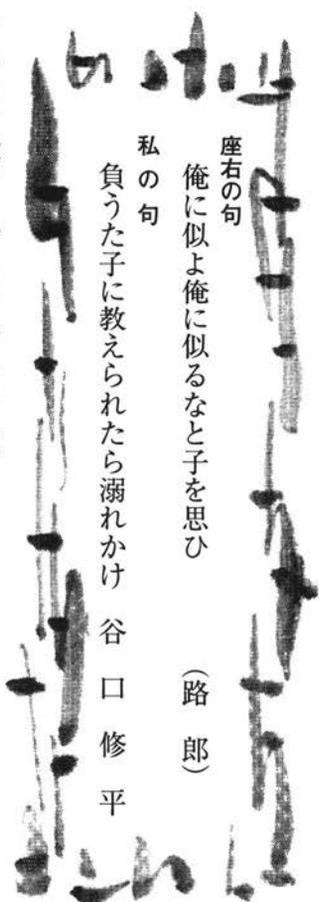 座右の句
俺に似よ俺に似るなと子を思ひ （路郎）
私の句
負うた子に教えられたら溺れかけ 谷口修平